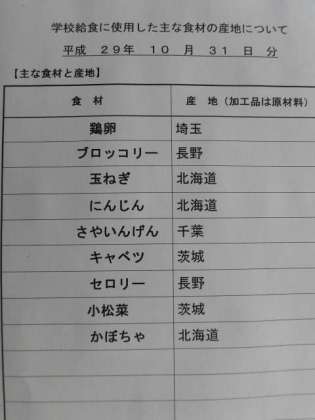 学校給食に使用した主な食材の産地について
平成 29年 10 月 31 日 分
【主な食材と産地】
食 材 産 地（加工品は原材料）
鶏卵 埼玉
ブロッコリー 長野
玉ねぎ 北海道
にんじん 北海道
さやいんげん 千葉
キャベツ 茨城
セロリー 長野
小松菜 茨城
かぼちゃ 北海道